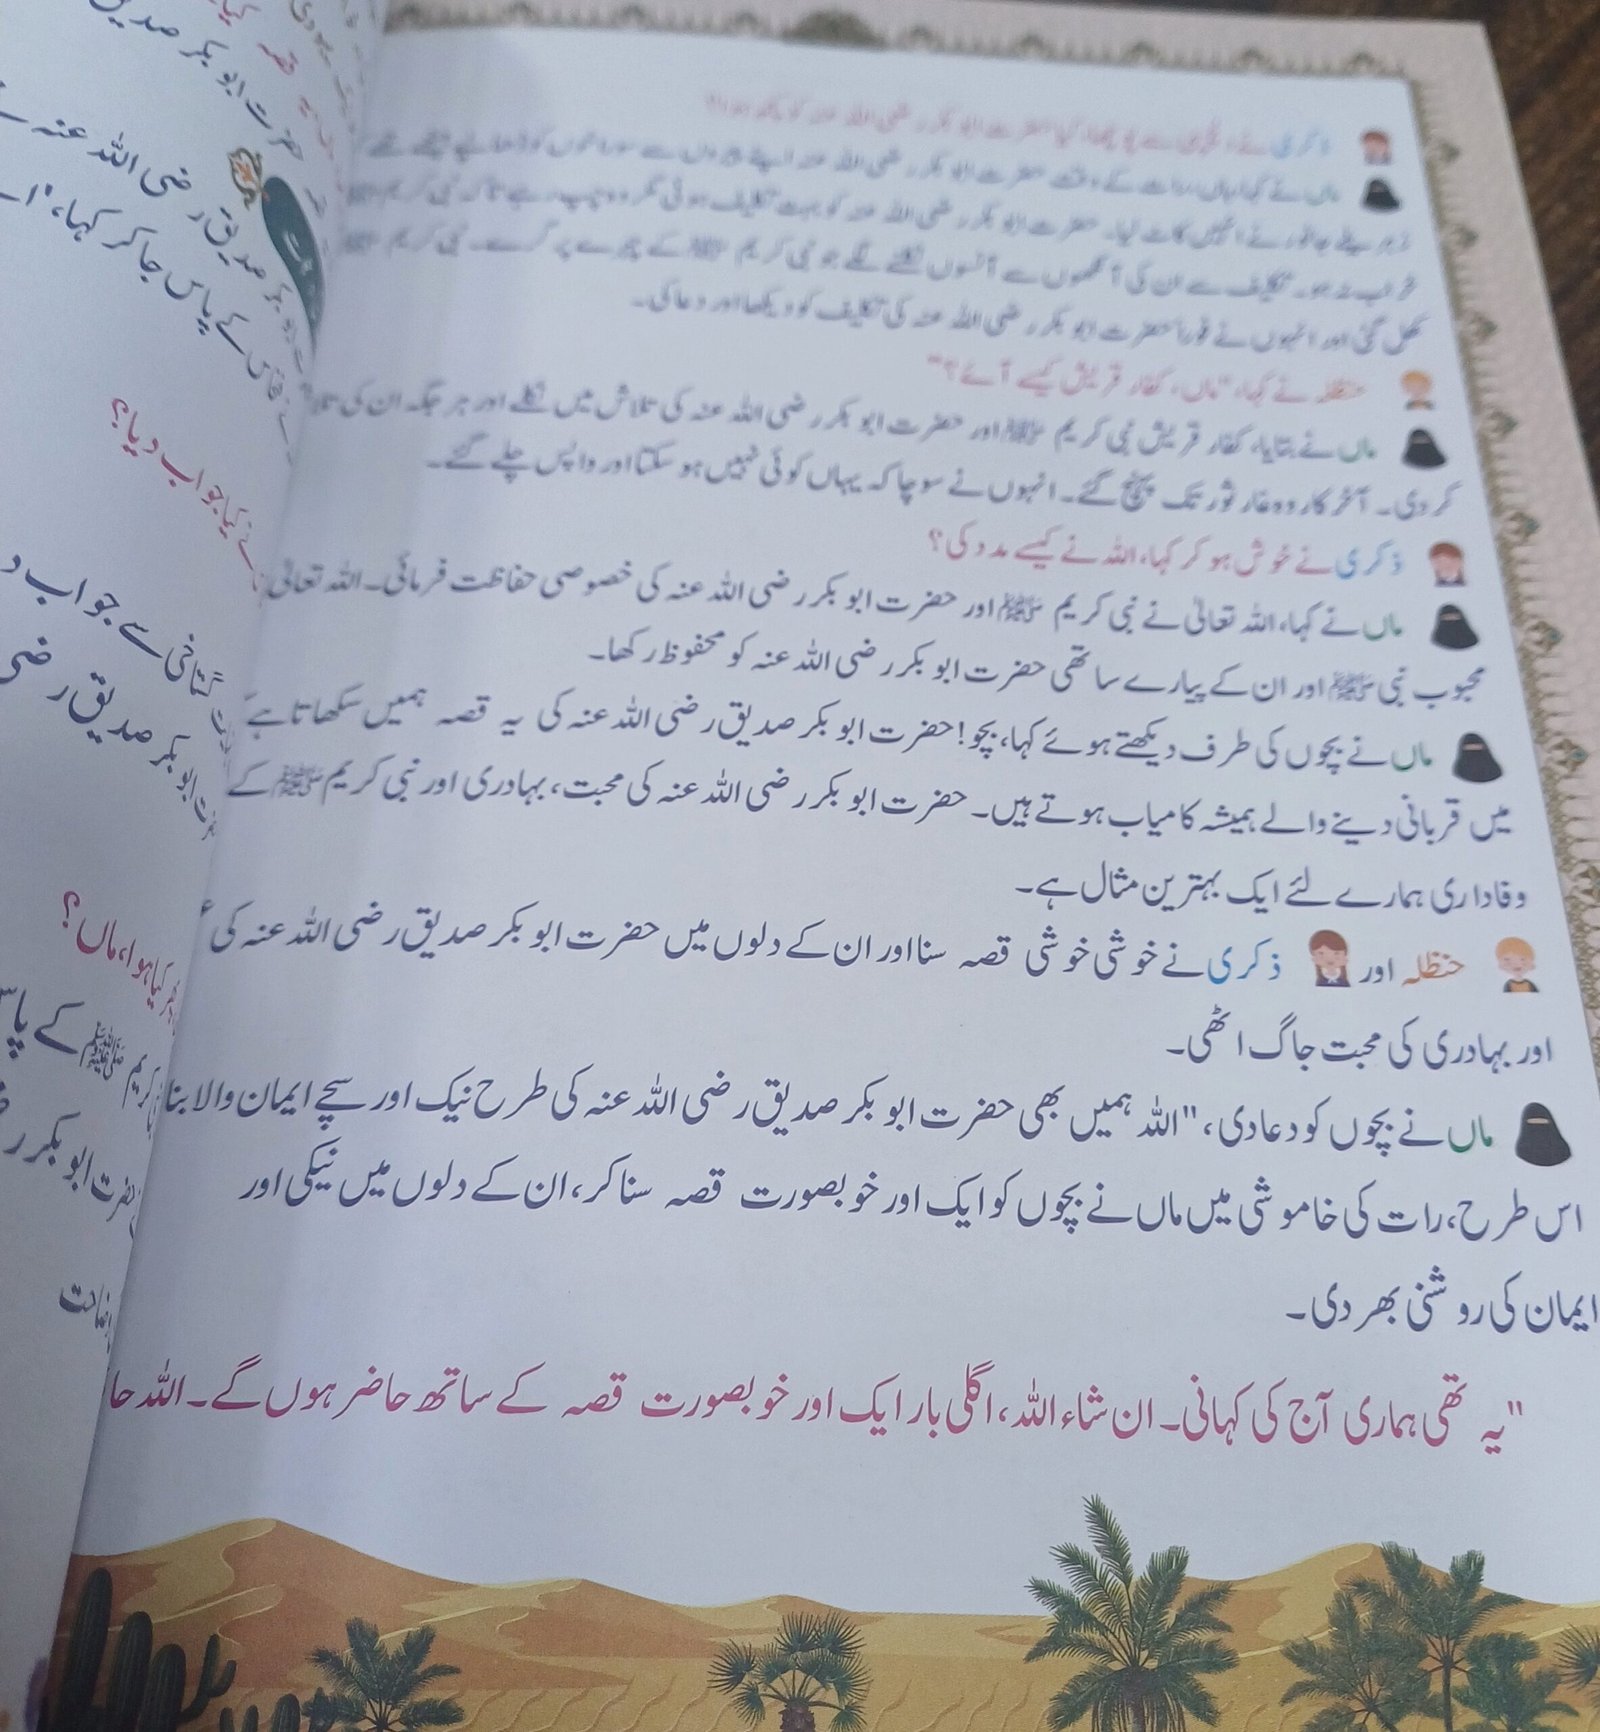 ذکری نے، پوچھا، کیا حضرت ابو بکر رضی اللہ عنہ کو کچھ ہوا؟
ماں نے کہا، ہاں، رات کے وقت حضرت ابو بکر رضی اللہ عنہ اپنے پیروں سے سوراخوں کو ڈھانپے بیٹھے تھے
زہریلے جانور نے انہیں کاٹ لیا۔ حضرت ابو بکر رضی اللہ عنہ کو بہت تکلیف ہوئی مگر وہ چپ رہے تاکہ نبی کریم ﷺ
خراب نہ ہو۔ تکلیف سے ان کی آنکھوں سے آنسوں نکلنے لگے جو نبی کریم ﷺ کے چہرے پر گرے۔ نبی کریم ﷺ
کھل گئی اور انہوں نے فوراً حضرت ابو بکر رضی اللہ عنہ کی تکلیف کو دیکھا اور دعا کی۔
حنظلہ نے کہا، "ماں، کفار قریش کیسے آئے؟"
ماں نے بتایا، کفار قریش نبی کریم ﷺ اور حضرت ابو بکر رضی اللہ عنہ کی تلاش میں نکلے اور ہر جگہ ان کی
کر دی۔ آخر کار وہ غار ثور تک پہنچ گئے۔ انہوں نے سوچا کہ یہاں کوئی نہیں ہو سکتا اور واپس چلے گئے۔
ذکری نے خوش ہو کر کہا، اللہ نے کیسے مدد کی؟
ماں نے کہا، اللہ تعالیٰ نے نبی کریم ﷺ اور حضرت ابو بکر رضی اللہ عنہ کی خصوصی حفاظت فرمائی۔ اللہ تعالیٰ
محبوب نبی ﷺ اور ان کے پیارے ساتھی حضرت ابو بکر رضی اللہ عنہ کو محفوظ رکھا۔
ماں نے بچوں کی طرف دیکھتے ہوئے کہا، بچو! حضرت ابو بکر صدیق رضی اللہ عنہ کی یہ قصہ ہمیں سکھاتا ہے
میں قربانی دینے والے ہمیشہ کامیاب ہوتے ہیں۔ حضرت ابو بکر رضی اللہ عنہ کی محبت، بہادری اور نبی کریم ﷺ کے
وفاداری ہمارے لئے ایک بہترین مثال ہے۔
حنظلہ اور ذکری نے خوشی خوشی قصہ سنا اور ان کے دلوں میں حضرت ابو بکر صدیق رضی اللہ عنہ کی
اور بہادری کی محبت جاگ اٹھی۔
ماں نے بچوں کو دعا دی، "اللہ ہمیں بھی حضرت ابو بکر صدیق رضی اللہ عنہ کی طرح نیک اور سچے ایمان والا بنا
اس طرح، رات کی خاموشی میں ماں نے بچوں کو ایک اور خوبصورت قصہ سنا کر، ان کے دلوں میں نیکی اور
ایمان کی روشنی بھر دی۔
"یہ تھی ہماری آج کی کہانی۔ ان شاء اللہ، اگلی بار ایک اور خوبصورت قصہ کے ساتھ حاضر ہوں گے۔ اللہ حا
حضرت ابو بکر صدیق
صدیق رضی اللہ عنہ
کے پاس جا کر کہا،
نے کیا جواب دیا؟
گستاخی سے جواب د
ابو بکر صدیق رضی
کیا ہوا، ماں؟
کریم ﷺ کے پا
حضرت ابو بکر ر